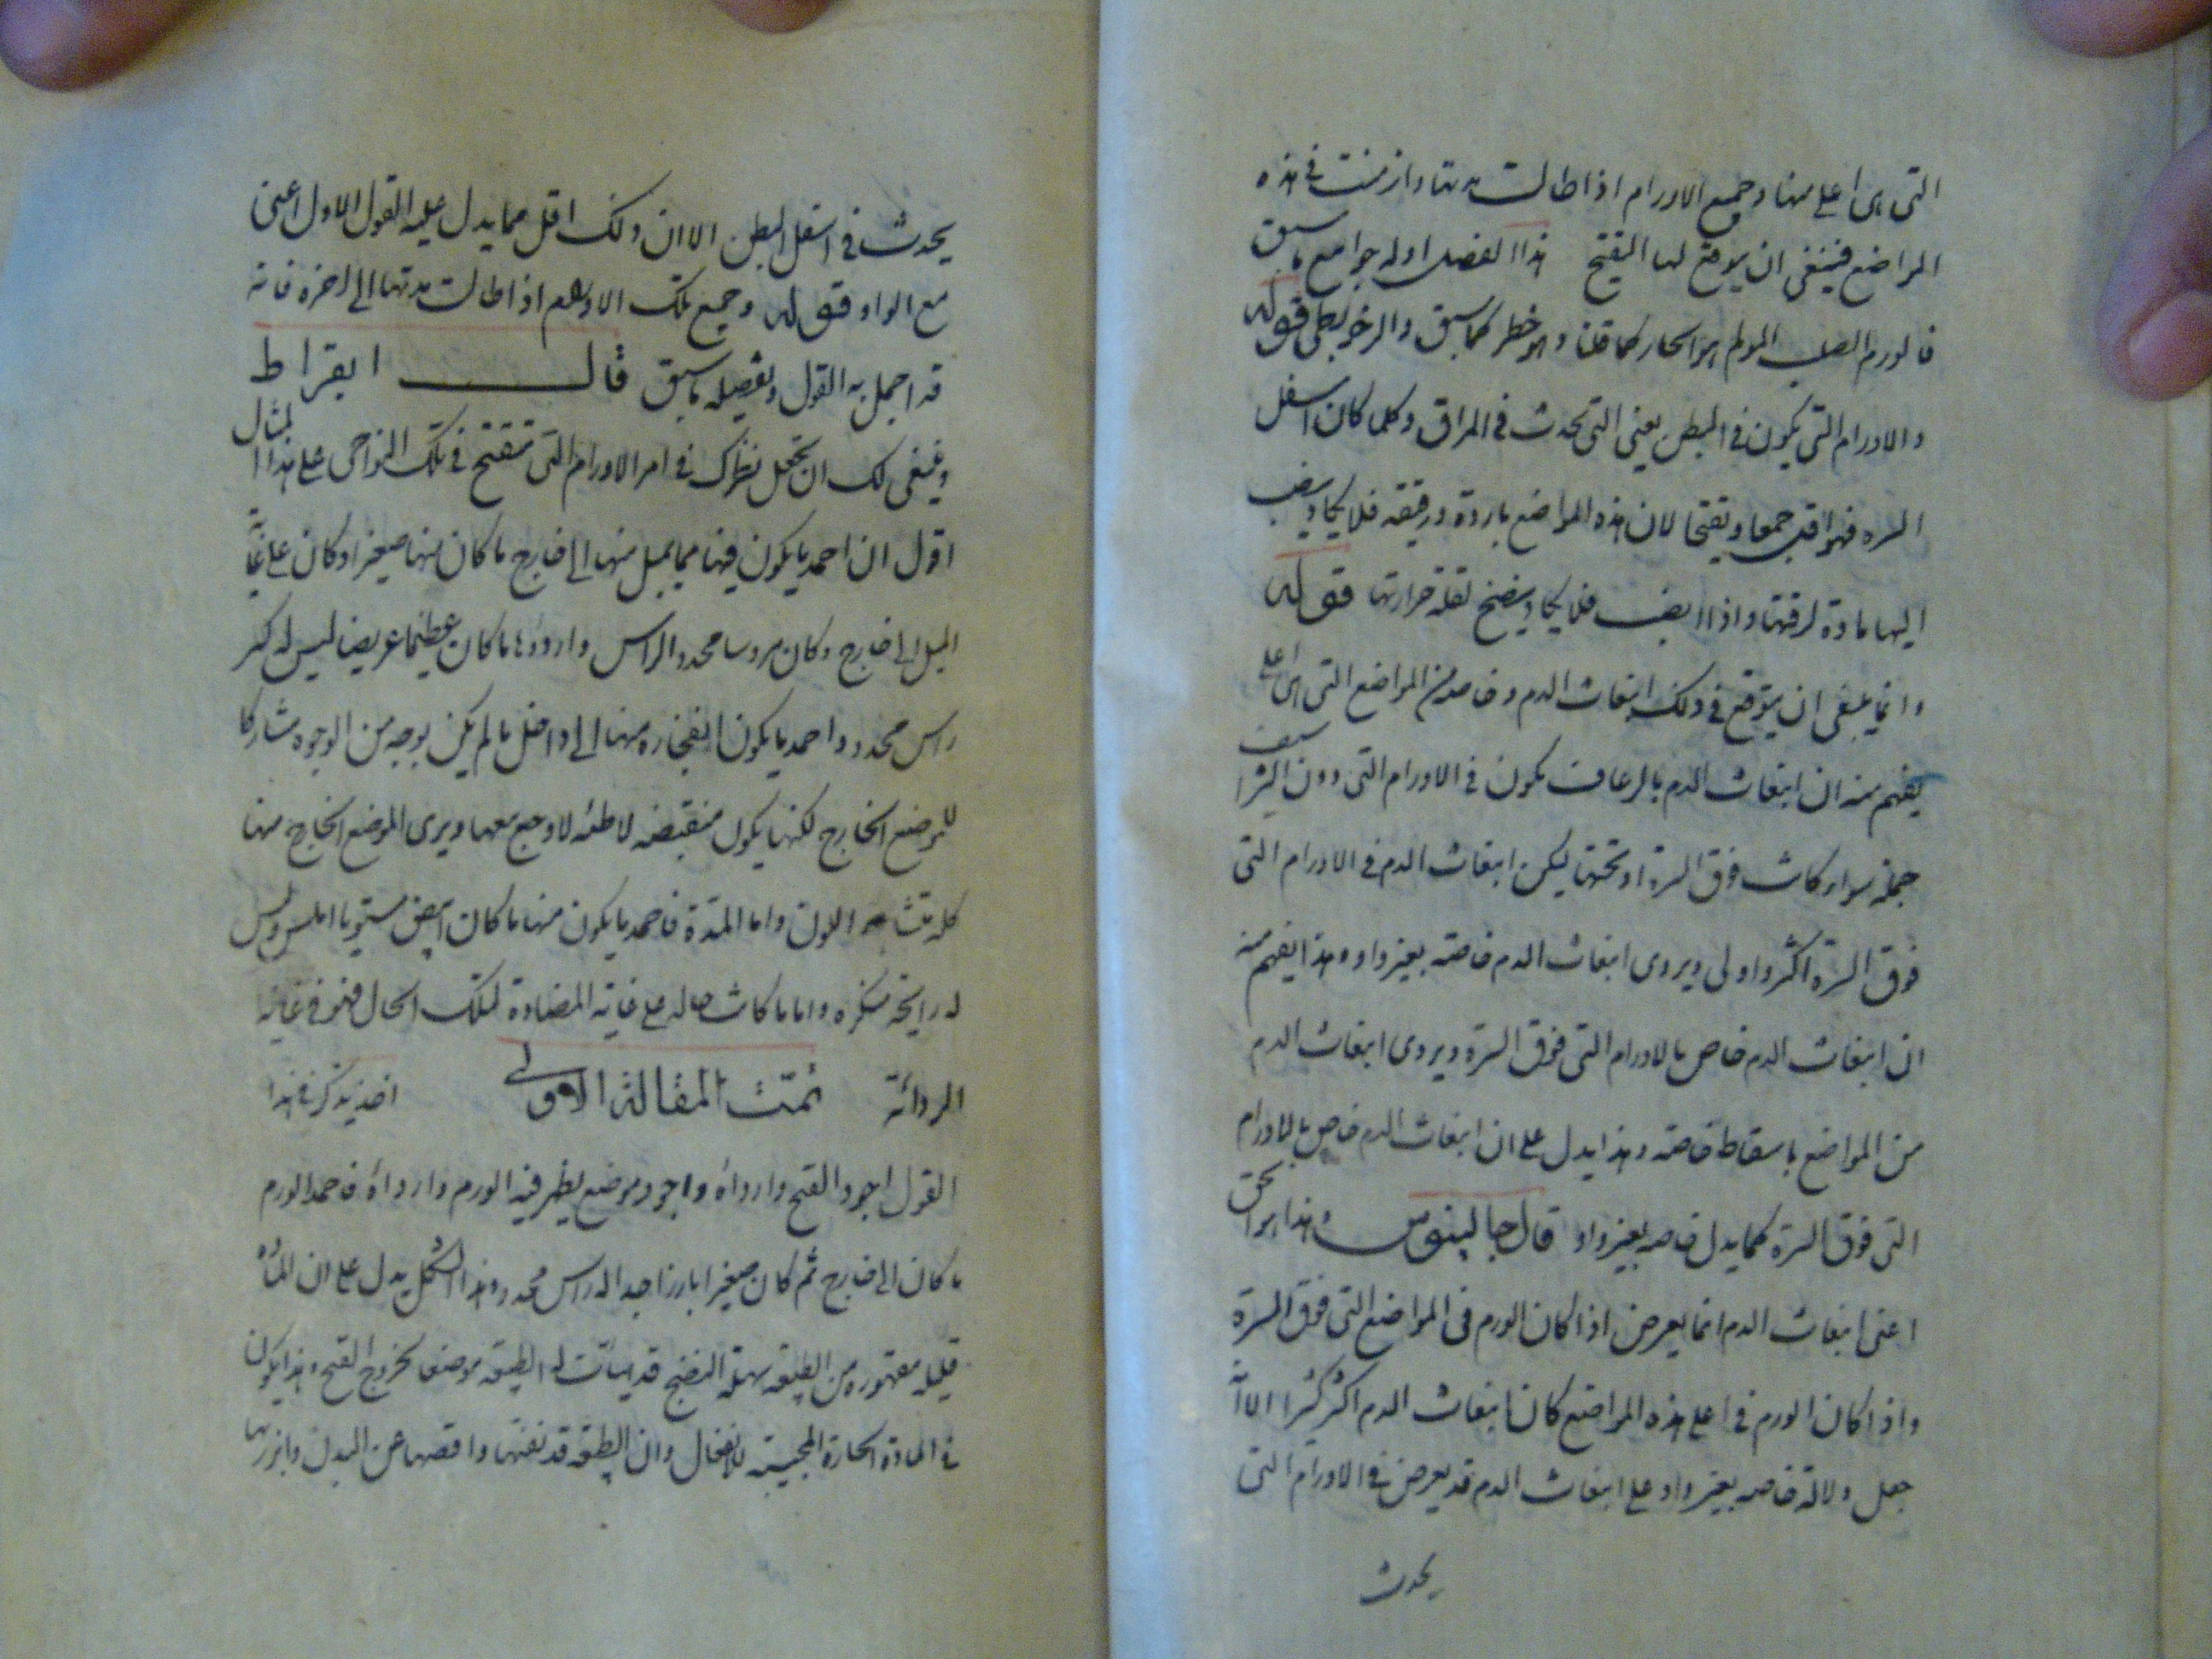 التى هى اعلى منها وجميع الاورام اذا طالت مدتها وازمنت فى هذه
المواضع فينبغى ان يتوقع لها التقيح هذا الفصل اوله جوامع ما سبق
فالورم الصلب المولم هو الحار كما قلنا وهو خطر كما سبق والرخو بطى قوله
والاورام التى يكون فى البطن يعنى التى تحدث فى المراق وكلما كان اسفل
السره فهو اقل جمعا وتقيحا لان هذه المواضع باردة ورقيقه فلا يكاد ينصب
اليها مادة لرقتها واذا انصب فلا يكاد ينضج لقلة حرارتها قوله
وانما ينبغى ان يتوقع فى ذلك انبعاث الدم وخاصه من المواضع التى هى اعلى
يفهم منه ان انبعاث الدم بالرعاف يكون فى الاورام التى دون الشراسيف
جملة سواء كانت فوق السرة او تحتها ليكن انبعاث الدم فى الاورام التى
فوق السرة اكثر واولى ويروى انبعاث الدم خاصة بغير واو وهذا يفهم منه
ان انبعاث الدم خاص بالاورام التى فوق السرة ويروى انبعاث الدم
من المواضع باسقاط خاصه وهذا يدل على ان انبعاث الدم خاص بالاورام
التى فوق السرة كما يدل خاصه بغير واو قال جالينوس وهذا هو الحق
اعنى انبعاث الدم انما يعرض اذا كان الورم فى المواضع التى فوق السرة
واذا كان الورم فى اعلى هذه المواضع كان انبعاث الدم اكثر كثيرا الا انه
جعل دلالة خاصه بغير واو على انبعاث الدم قد يعرض فى الاورام التى
يحدث
يحدث فى اسفل البطن الا ان ذلك اقل مما يدل عليه القول الاول اعنى
مع الواو قوله وجميع تلك الاورام اذا طالت مدتها الى اخره فانه
قد اجمل به القول وتفصيله ما سبق قال ابقراط
وينبغى لك ان تجعل نظرك فى امر الاورام التى تتقيح فى تلك النواحى على هذا المثال
اقول ان احمد ما يكون فيها مما يميل منها الى خارج ما كان منها صغيرا وكان على غاية
الميل الى خارج وكان مروسا محدد الراس واردؤها ما كان عظيما عريضا ليس له كبر
راس محدد واحمد ما يكون انفجاره منها الى داخل ما لم يكن بوجه من الوجوه مشاركا
للموضع الخارج لكنها يكون منقبضه لاطئه لا وجع معها ويرى الموضع الخارج منها
كله متشابه اللون واما المدة فاحمد ما يكون منها ما كان ابيض مستويا املس وليس
له رايحة منكره واما ما كانت حاله على غاية المضادة لتلك الحال فهو فى غاية
الردائة تمت المقالة الاولى اخذ يذكر فى هذا
القول اجود القيح وارداه واجود موضع يظهر فيه الورم وارداه فاحمد الورم
ما كان الى خارج ثم كان صغيرا بارزا جدا له راس محدد وهذا الشكل يدل على ان المادة
قليله مقهوره من الطبيعه سهلة النضج قد هيأت لها الطبيعه موضعا لخروج القيح وهذا يكون
فى المادة الحارة المجيبة للانفعال وان الطبيعه قد نفتها واقصتها عن البدن وابرزتها